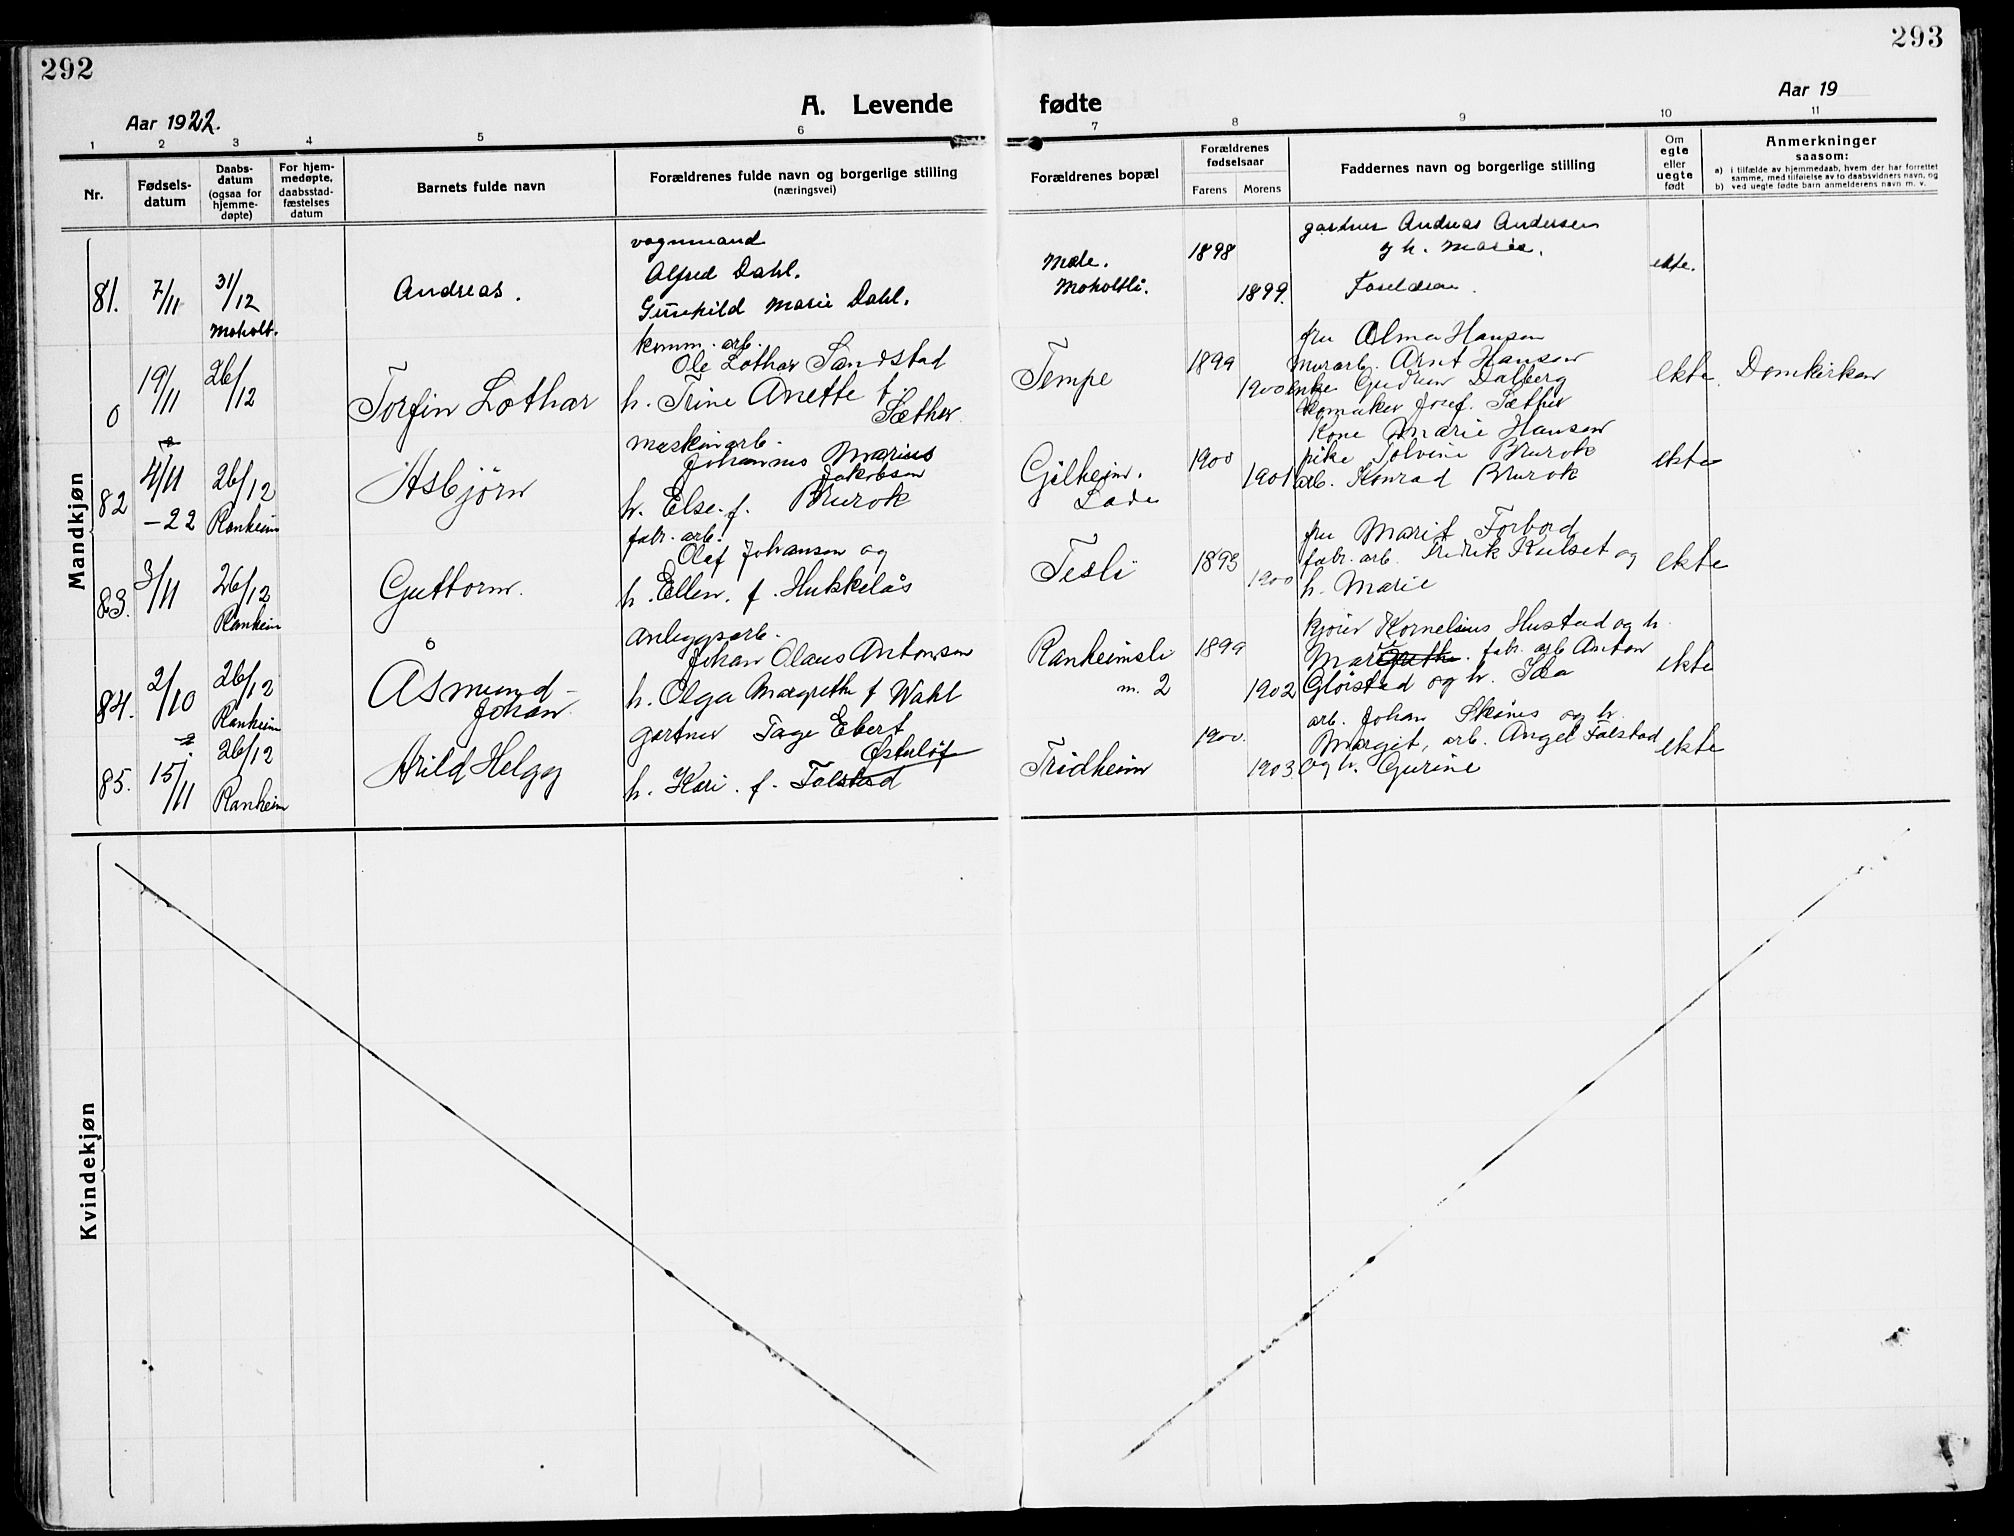 292
293
Aar 1922.
A. Levende
fødte
Aar 19
1 2 3 4 5 6 7 8 9 10 11
Nr.
Fødsels-
datum
Daabs-
datum
(ogsaa for
hjemme-
døpte)
For hjem-
medøpte,
daabsstad-
fæstelses
datum
Barnets fulde navn
Forældrenes fulde navn og borgerlige stilling
(næringsvei)
Forældrenes bopæl
Forældrenes
fødselsaar
Farens Morens
Faddernes navn og borgerlige stilling
Om
egte
eller
uegte
født
Anmerkninger
saasom:
a) i tilfælde av hjemmedaab, hvem der har forrettet
samme, med tilføielse av to daabsvidners navn, og
b) ved uegte fødte barn anmelderens navn m. v.
Mandkjøn
81. 7/11 31/12
Moholt.
Andreas.
vognmand
Alfred Dahl.
Gunhild Marie Dahl.
Moholtli.
1898
1899.
gartner Andreas Andersen
og h. Marie.
Foreldrene.
ekte.
0 19/11 26/12
Torfin Lothar
komm. arb.
Ole Lothar Sandstad
h. Trine Anette f.
Sæther
Tempe
1899
1900
fru Alma Hansen
Murarb. Arnt Hansen
enke Gudrun Dalberg
skomaker Josef. Sæther
ekte.
Domkirken
82 4/11 26/12
-22 Ranheim
Asbjørn
maskinarb.
Johannes Marius
Jakobsen
h. Else. f. Brurok
Gilheim.
Lade
1900
1901
Kone Marie Hansen
pike Tolvine Brurok
arb. Konrad Brurok
ekte
83. 3/11 26/12
Ranheim
Guttorm.
fabr. arb.
Olaf Johansen og
h. Ellen. f. Hukkelås
Tesli
1893
1900
fru Marit Forbord
fabr. arb. Fredrik Kulset og
h. Marie
ekte
84. 2/10 26/12
Ranheim
Åsmund
Johan
anleggsarb.
Johan Olaus Antonsen
h. Olga Margrethe f Wahl
Ranheimsli
m. 2
1899
1902
kjører Kornelius Hustad og h.
Mari. fabr. arb Anton
Gløistad og h. Ida
ekte
85. 15/11 26/12
Ranheim
Arild Helge
gartner Tage Ebert
Østerløf
h. Kari. f. Falstad
Tridheim
1900.
1903
arb. Johan Skånes og h.
Margit, arb. Angel Falstad
og h. Gurine
ekte
Kvindekjøn